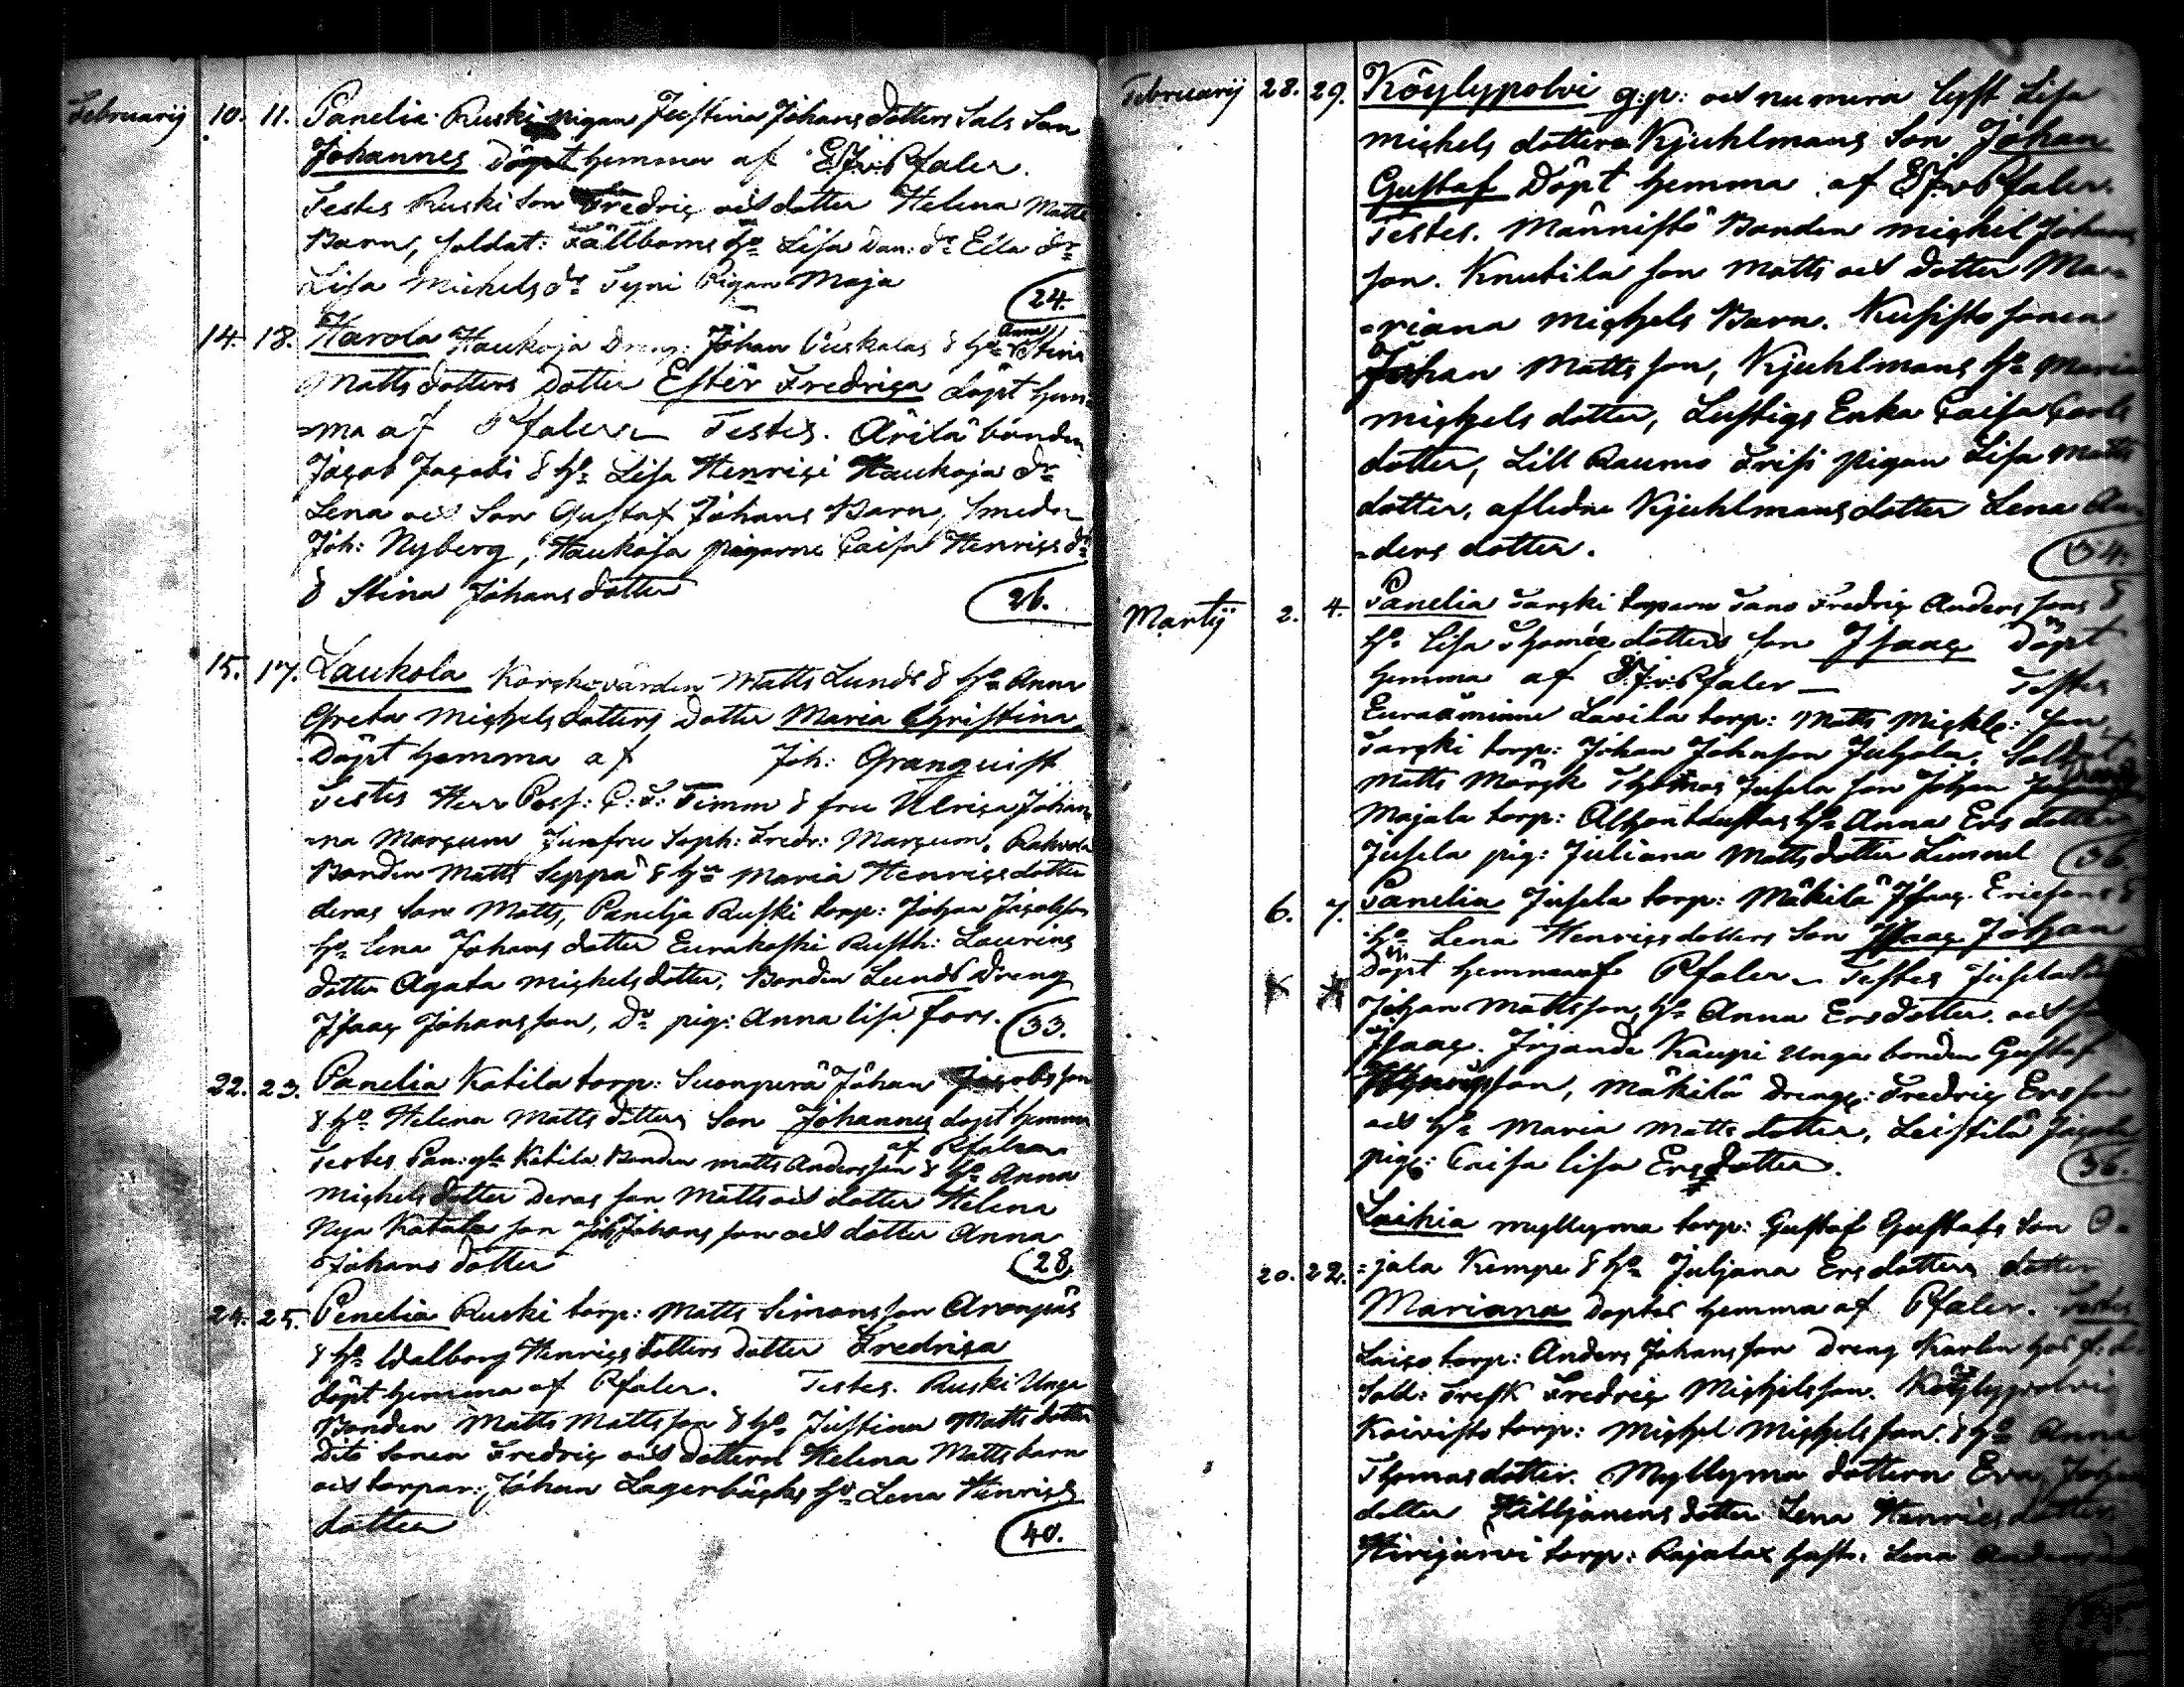 Februarij 10. 11. Panelia Ruski pigan Justina Johans dotters Sals Son
Johannes Döpt hemma af Pfaler.
Testes Ruski Son Fredric och dotter Helena Matts
Barn, soldat: Fällboms hu Lisa Dan: dr Ella dr
Lisa Michels dr Tyni Pigan Maja
24.
14. 18. Harola Haukoja Dreng: Johan Uuskalas & hu Anna Stina
Matts dotters Dotter Ester Fredrica Döpt hem=
=ma af Pfaler Testes. Ärilä bonden
Jacob Jacobi & hu Lisa Henrici Haukoja dr
Lena och Son Gustaf Johans Barn, Smeden
Joh: Nyberg, Haukoja pigorne Caisa Henrics dr
& Stina Johans dotter
26.
15. 17. Laukola Matts Lunds & hu Anna
Greta Michels dotters dotter Maria Christina
Döpt hemma af Joh: Granquist
Testes Herr C: F: Timm & fru Ulrica Johan=
=na Marcum Jumfru Soph: Fredr: Marcum,
Bonden Matts Seppä & hu Maria Henrics dotter
deras Son Matts, Panelja Ruski torp: Johan Jacobsson
hu Lena Johans dotter Eurakoski Rusth: Laurins
dotter Agata Michels dotter, Bonden Lunds Dreng
Isaac Johans son, Do pig: Anna Lisa Fors.
33.
22. 23. Panelia Katila torp: Suonperä Johan Jacobs son
& hu Helena Matts dotters Son Johannes döpt hemma
af Pfaler
Testes Pan: gla Katila Bonden Matts Andersson & hu Anna
Michels dotter Deras son Matts och dotter Helena
Nya Katala son Joh Johans son och dotter Anna
Johans dotter
28
24. 25. Penelia Ruski torp: Matts Simons son
& hu Walborg Henrics dotters dotter Fredrica
döpt hemma af Pfaler. Testes. Ruski Unga
Bonden Matts Matts son & hu Justina Matts dotter
Dito Sonen Fredric och dottern Helena Matts barn
och torpar: Johan Lagerbäcks hu Lena Henrics
dotter
40.
Februarij 28. 29. Köylypolvi g:p: och numera lyst Lisa
Michels dotters Kjuhlmans Son Johan
Gustaf Döpt hemma af Pfaler.
Testes. Männistö Bonden Michel Johans
son. Knutila son Matts och dotter Ma=
=riana Michels Barn. Kusisto sonen
Johan Matts son, Kjuhlmans hu Maria
Michels dotter, Lustigs Enka Caisa Carls
dotter, Lill Raumo Frisi pigan Lisa Matts
dotter, afledne Kjuhlmans dotter Lena An=
=ders dotter.
34.
Martij 2. 4. Panelia Tarski torparn Tano Fredric Anders sons &
hu Lisa dotters son Isaac Döpt
hemma af Pfaler Testes
Lavila torp: Matts Michls: son
Tarski torp: Johan Johnson Juhola, Soldat
Matts Mörck Thomas Jusela son Johan
Majala torp: hu Anna Ers dotter
Jusela pig: Juliana Matts dotter
36.
6. 7. Panelia Jusela torp: Mäkilä Isaac Ericsons &
hu Lena Henrics dotters Son Isaac Johan
Döpt hemma af Pfaler Testes Jusela
Johan Matts son, hu Anna Ers dotter. och
Isaac. Kaupi Unga bonden Gustaf
son, Mäkilä Dreng: Fredric Ers son
och hu Maria Matts dotter, Leistilä
pig: Caisa Lisa Ers dotter.
36.
20. 22. Laihia Myllyma torp: Gustaf Gustafs Son O=
=jala Kempe & hu Juljana Ers dotters dotter
Mariana Döptes hemma af Pfaler. Testes
torp: Anders Johans son Dreng Karlin hos
Sold: Fredric Michels son. Köylypolvi
Koivisto torp: Michel Michels son. & hu Anna
Thomas dotter. Myllyma dottern Eva Johans
dotter dotter Lena Henrics dotter
torp: Rajalas hustr: Lena Anders